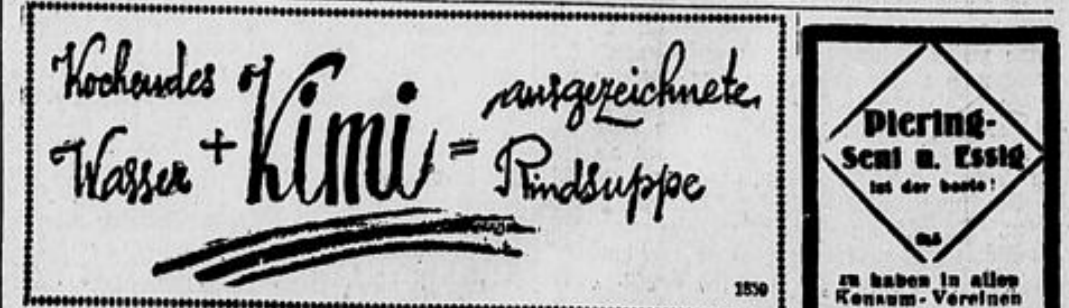 Kochendes
Wasser + Kimi =
ausgezeichnete
Rindsuppe
1850
Piering-
Senf u. Essig
ist der beste!
zu haben in allen
Konsum-Vereinen